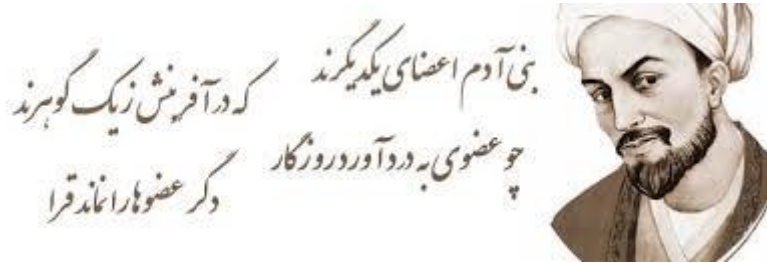 بنی آدم اعضای یکدیگرند
که در آفرینش ز یک گوهرند
چو عضوی به درد آورد روزگار
دگر عضوها را نماند قرا